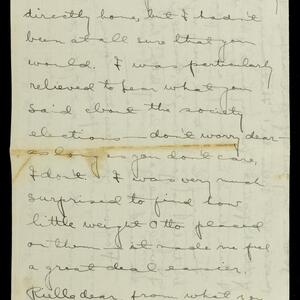 directly home, but I hadn't
been at all sure that you
would. I was particularly
relieved to hear what you
said about the society
elections — don't worry dear —
as long as you don't care,
I don't. I was very much
surprised to find how
little weight Otto placed
on them — it made me feel
a great deal easier.
dear, from what